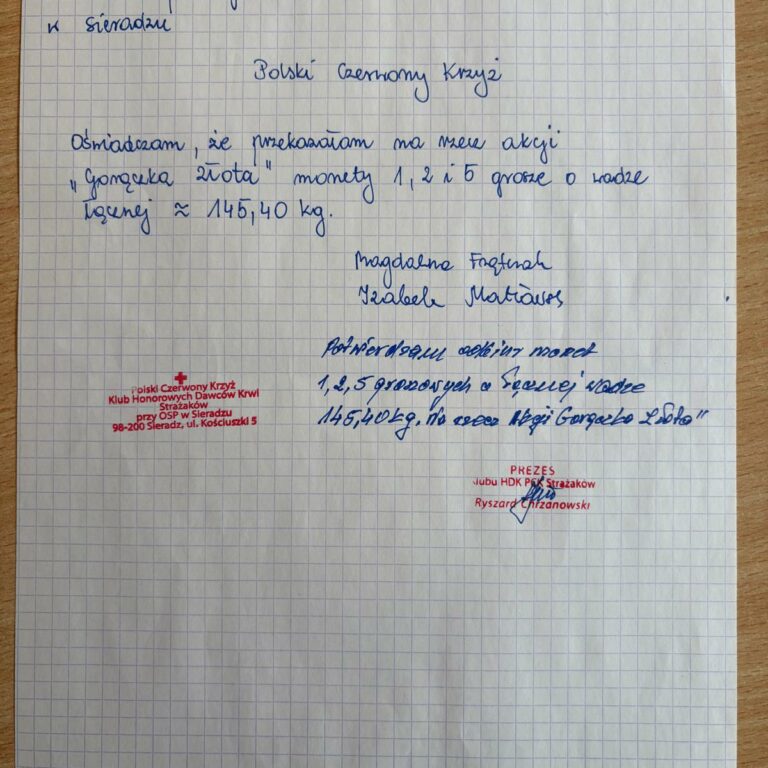 w Sieradzu
Polski Czerwony Krzyż
Oświadczam, że przekazałam na rzecz akcji
„Gorączka złota" monety 1, 2 i 5 grosze o wadze
łącznej ≈ 145,40 kg.
Magdalena
Izabela
Potwierdzam odbiór monet
1, 2, 5 groszowych o łącznej wadze
145,40 kg. na rzecz Akcji Gorączka Złota"
Polski Czerwony Krzyż
Klub Honorowych Dawców Krwi
Strażaków
przy OSP w Sieradzu
98-200 Sieradz, ul. Kościuszki 5
PREZES
lubu HDK PCK Strażaków
Ryszard Chrzanowski